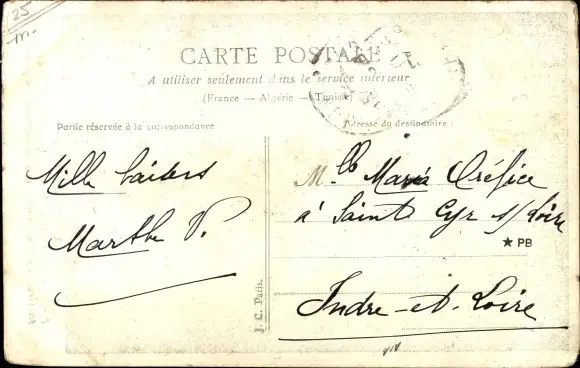 25
m.
CARTE POSTALE
A utiliser seulement dans le service intérieur
(France — Algérie — Tunisie)
Partie réservée à la correspondance
Adresse du destinataire
Mille baisers
Marthe V.
Mlle Maria Oréfice
à Saint Cyr s/Loire
★ PB
Indre-et-Loire
J. C. Paris.